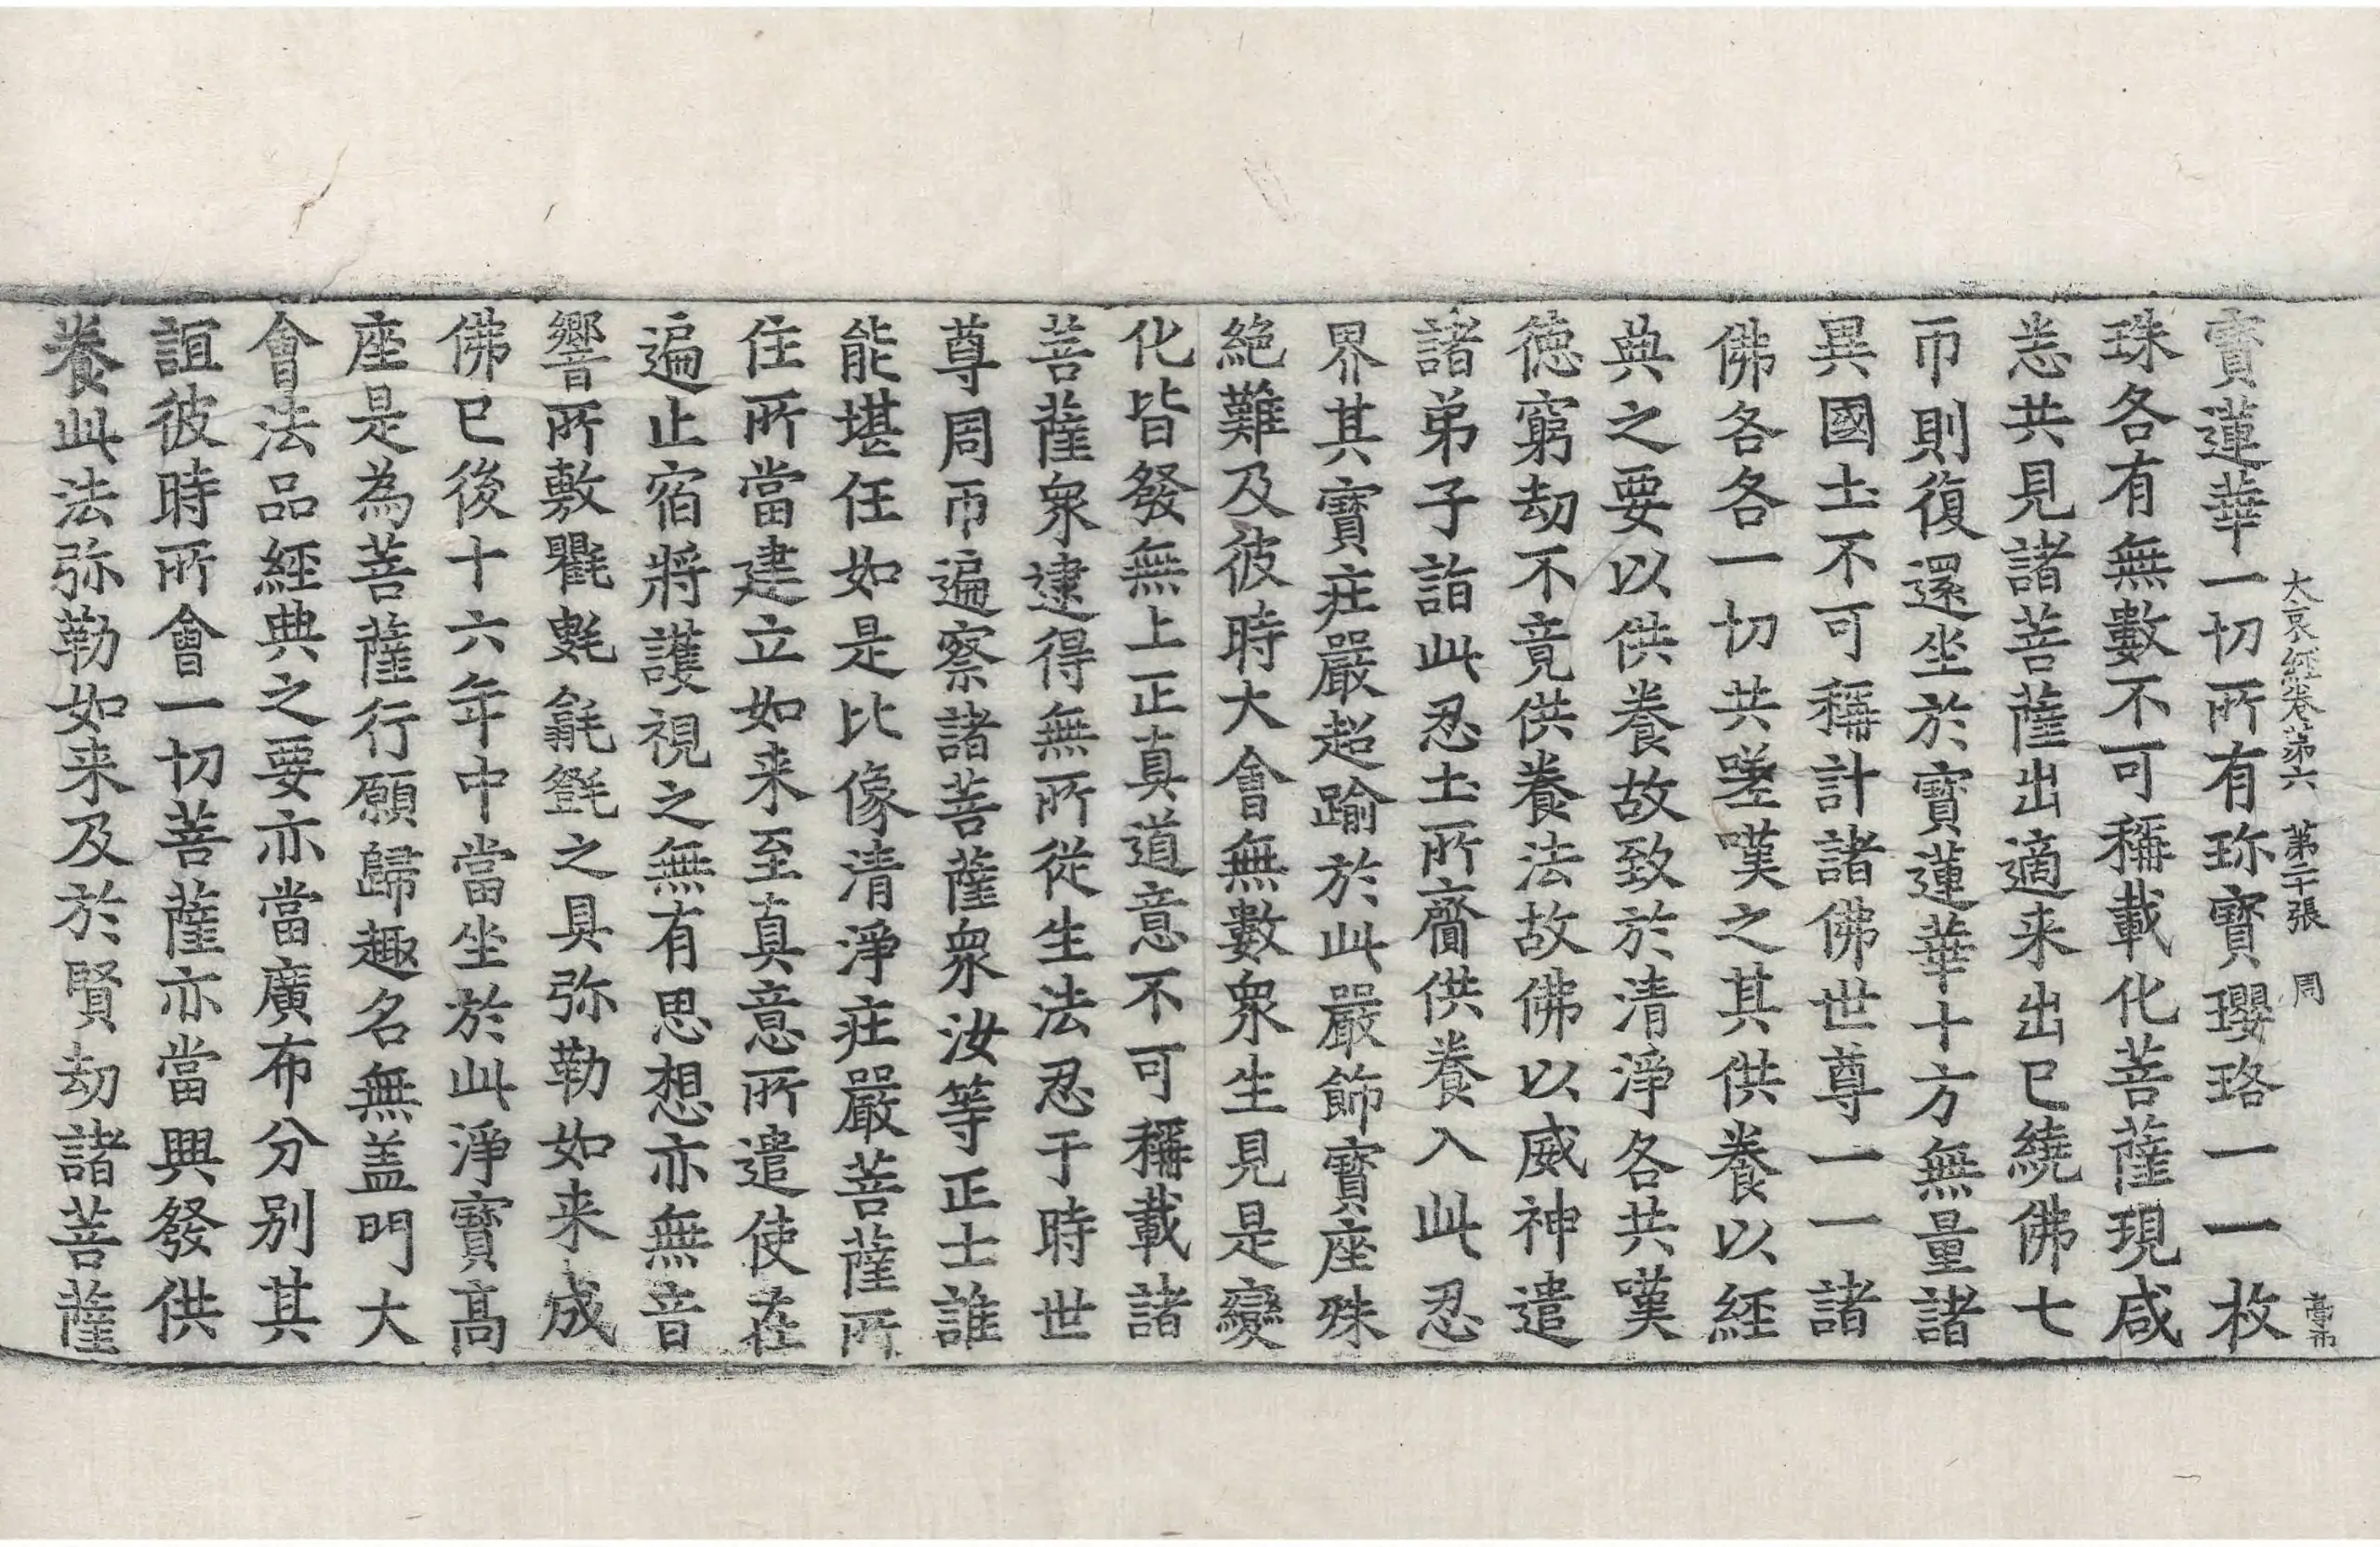 大哀經卷第六　第二十張　周
寶蓮華一切所有珎寶瓔珞一一枚
珠各有無數不可稱載化菩薩現咸
悉共見諸菩薩出適来出已繞佛七
帀則復還坐於寶蓮華十方無量諸
異國土不可稱計諸佛世尊一一諸
佛各各一切共嗟嘆之其供養以經
典之要以供養故致於清淨各共嘆
德窮劫不竟供養法故佛以威神遣
諸弟子詣此忍土所齎供養入此忍
界其寶莊嚴超踰於此嚴飾寶座殊
絶難及彼時大會無數衆生見是變
化皆發無上正真道意不可稱載諸
菩薩衆逮得無所從生法忍于時世
尊周帀遍察諸菩薩衆汝等正士誰
能堪任如是比像清淨莊嚴菩薩所
住所當建立如来至真意所遣使在
遍止宿將護視之無有思想亦無音
響所敷氍氀㲪㲪之具弥勒如来成
佛已後十六年中當坐於此淨寶高
座是為菩薩行願歸趣名無盖門大
會法品經典之要亦當廣布分别其
誼彼時所會一切菩薩亦當興發供
養此法弥勒如来及於賢劫諸菩薩